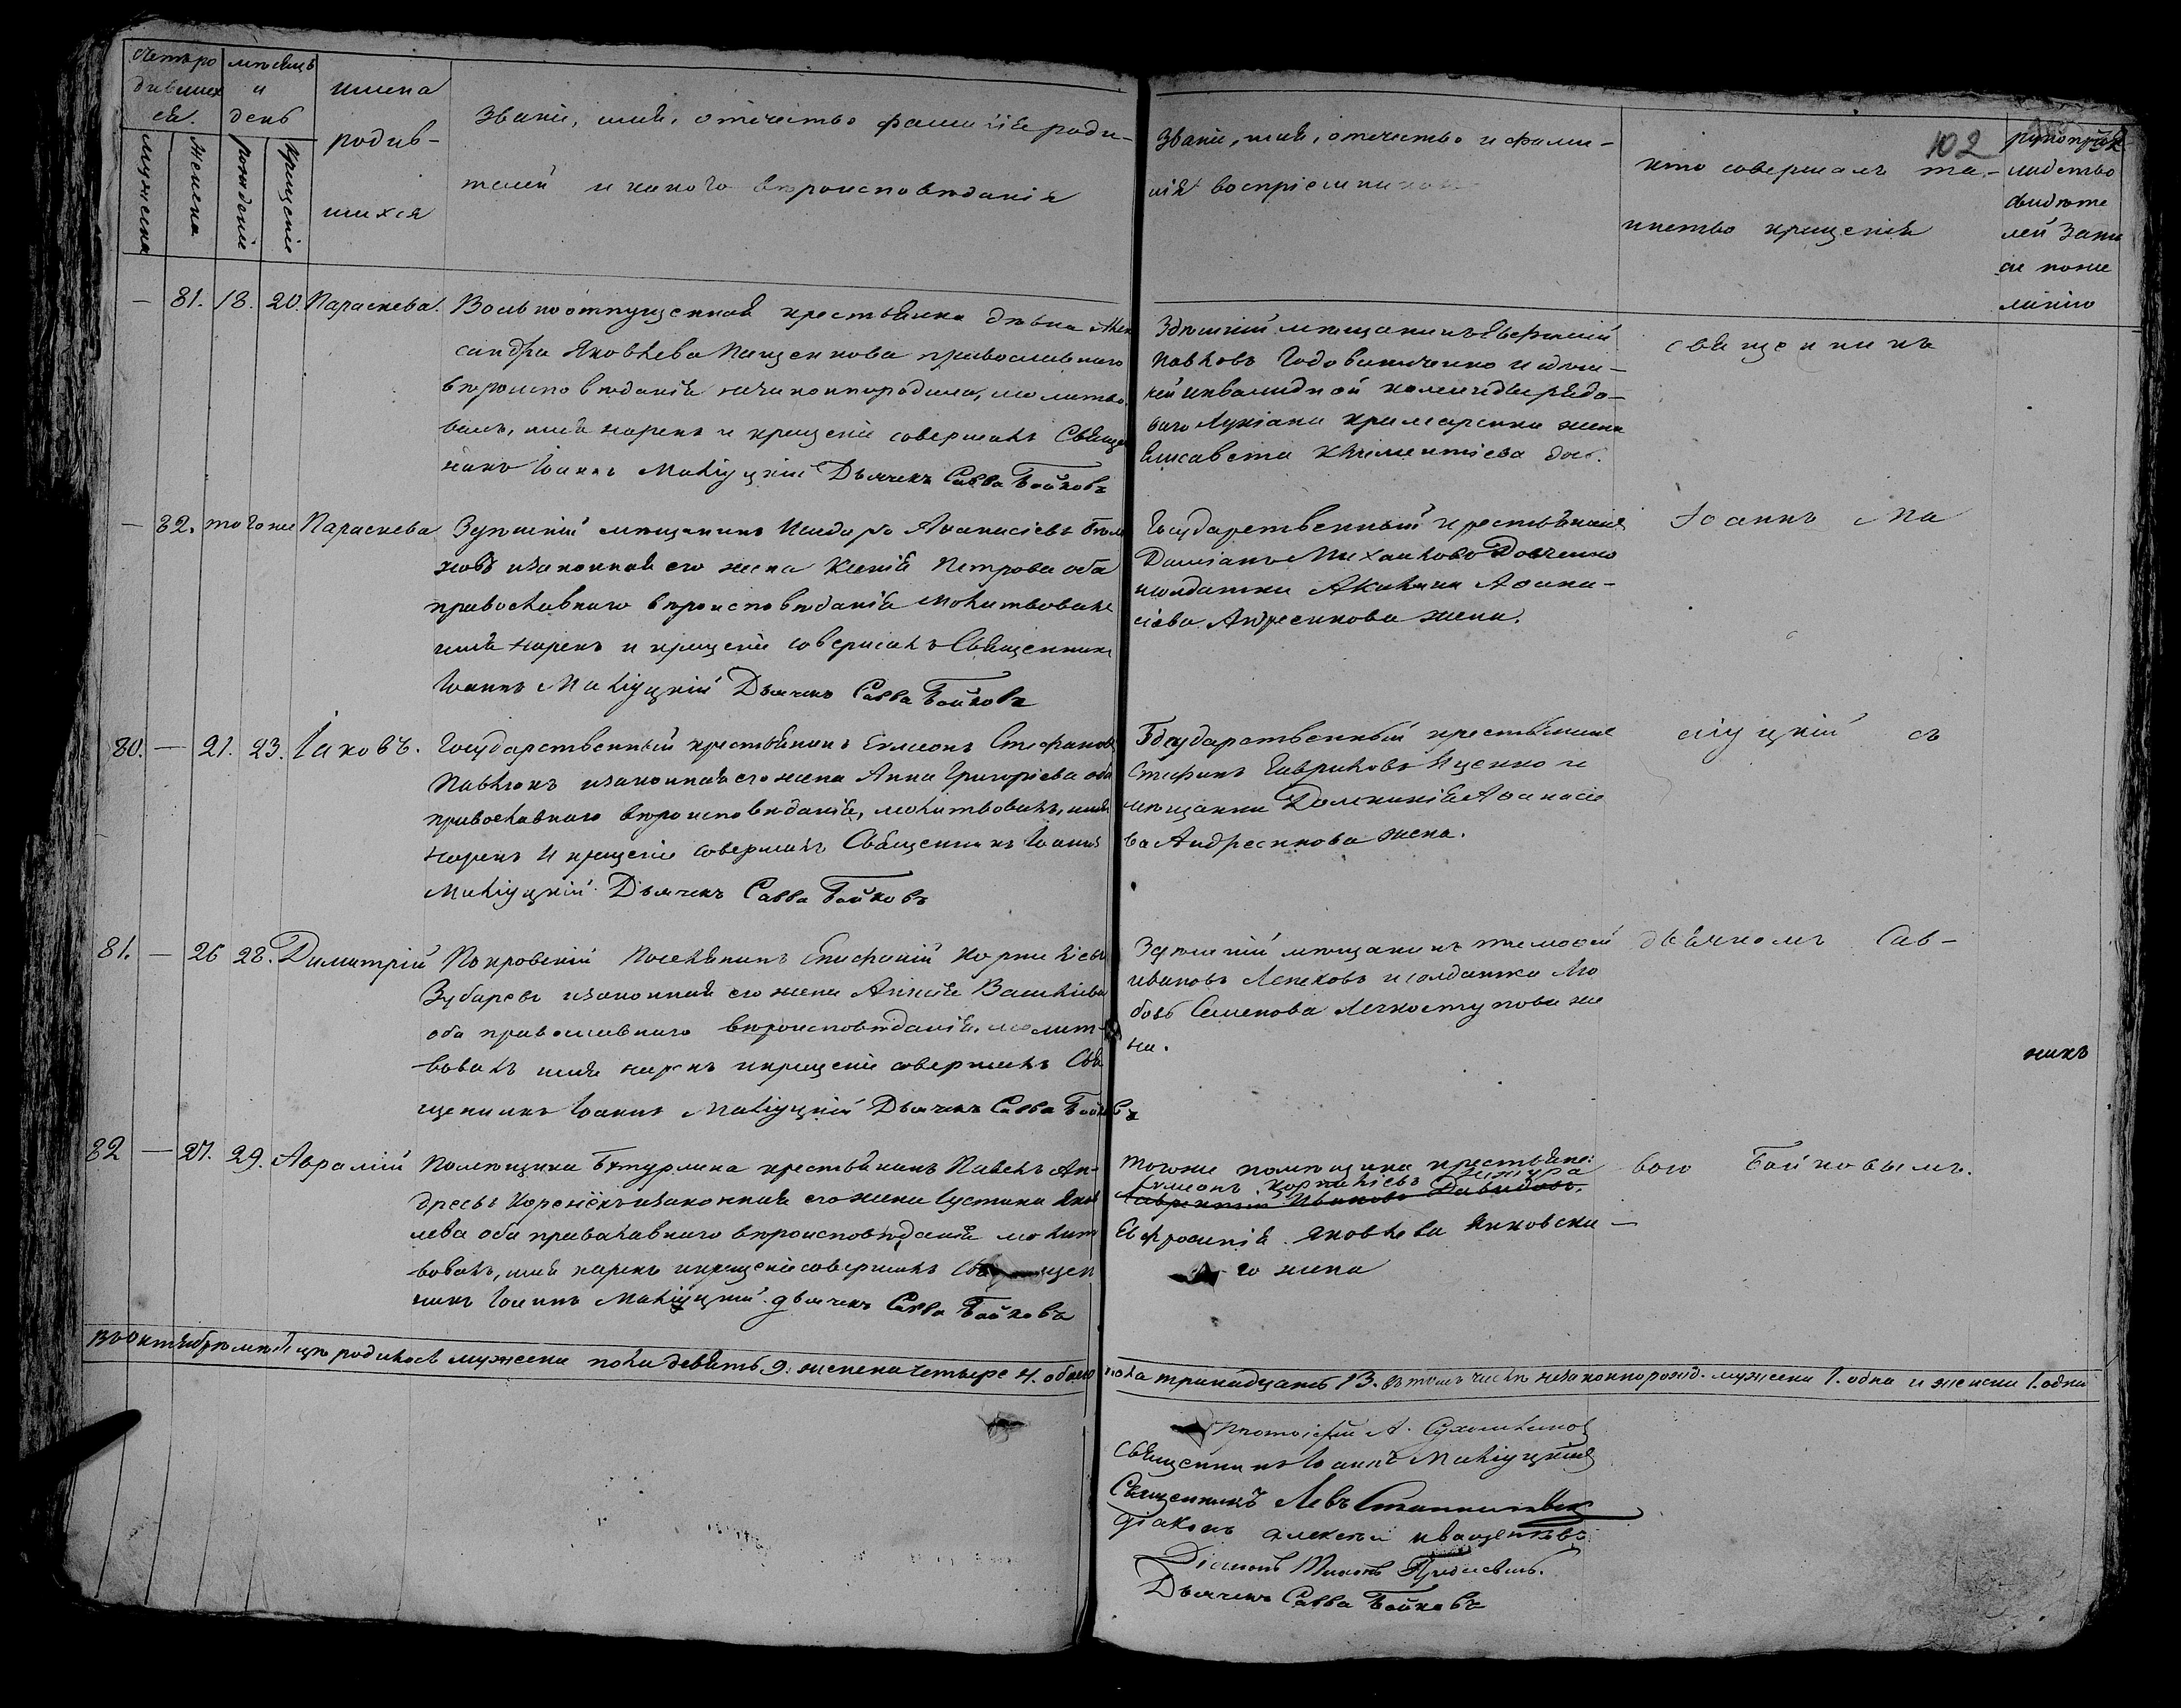 Счетъ ро
дивших
ся.
мѣсяцъ
и
день
имена
родив-
шихся
Званіе, имя, отечество фамилія роди-
телей и какого вѣроисповѣданія
мужеска
женска
рожденіе
крещеніе
Званіе, имя, отечество и фами-
лія воспріемниковъ
102
кто совершалъ та-
инство крещенія
рукоприк
ладство
свидѣте
лей запи
си по же
ланію
— 81. 18. 20. Параскева.
Вольноотпущенная крестьянка дѣвка Алек
сандра Яковлева Пащенкова православнаго
вѣроисповѣданія незаконнородила, молитво
валъ, имя нарекъ и крещеніе совершалъ Свяще
никъ Іоаннъ Маліуцкій Дьячекъ Савва Бойковъ
Здѣшній мѣщанинъ
Павловъ и здѣш-
ней инвалидной команды рядо-
ваго жена
Елисавета Климентіева доч.
священникъ
— 82. того же Параскева
Здѣшній мѣщанинъ Исидоръ Аѳанасіевъ
новъ и законная его жена Ксенія Петрова оба
православнаго вѣроисповѣданія молитвовалъ
имя нарекъ и крещеніе совершалъ Священникъ
Іоаннъ Маліуцкій Дьячекъ Савва Бойковъ
Государственный крестьянинъ
Даміанъ Михайловъ Довченко
и солдатка Акилина Аѳана-
сіева Андреенкова жена.
Іоаннъ Ма
80. — 21. 23. Іаковъ.
Государственный крестьянинъ Симеонъ Стефановъ
Павлюкъ и законная его жена Анна Григорьева оба
православнаго вѣроисповѣданія, молитвовалъ, имя
нарекъ и крещеніе совершалъ Священникъ Іоаннъ
Маліуцкій Дьячекъ Савва Бойковъ
Государственный крестьянинъ
Стефанъ Гавриловъ Ищенко и
мѣщанка Домникія Аѳанасіе
ва Андреенкова жена.
ліуцкій съ
81. — 26 28. Димитрій
Покровскій Поселянинъ Епифаній Корнилієвъ
Зубаревъ и законная его жена Аннія Василіева
оба православнаго вѣроисповѣданія, молит-
вовалъ имя нарекъ и крещеніе совершалъ Свя
щенникъ Іоаннъ Маліуцкій Дьячекъ Савва Бойковъ
Здѣшній мѣщанинъ Тимоѳей
Ивановъ Лепеховъ и солдатка Лю
бовь Семенова Легкоступова же
на.
дьячкомъ Сав-
никъ
82 — 27. 29. Аврамій
Помѣщика Бутурлина крестьянинъ Павелъ Ан-
дреевъ и законная его жена Іустина Яков
лева оба православнаго вѣроисповѣданія молит
вовалъ, имя нарекъ и крещеніе совершалъ Священ
никъ Іоаннъ Маліуцкій дьячекъ Савва Бойковъ
того же помѣщика крестьяне:
Симеонъ Корнилієвъ
Лаврентій Ивановъ Давидовъ,
Евфросинія Яковлева Янковска-
го жена
вою Бойковымъ.
Въ октябрѣ мѣсяцѣ родилось мужеска пола девять 9. женска четыре 4. обоего пола тринадцать 13. въ томъ числѣ незаконнорожд. мужеска 1. одна и женска 1. одна
Протоіерей А.
Священникъ Іоаннъ Маліуцкій
Священникъ Левъ
Діаконъ Алексѣй Иващенковъ
Діаконъ
Дьячекъ Савва Бойковъ